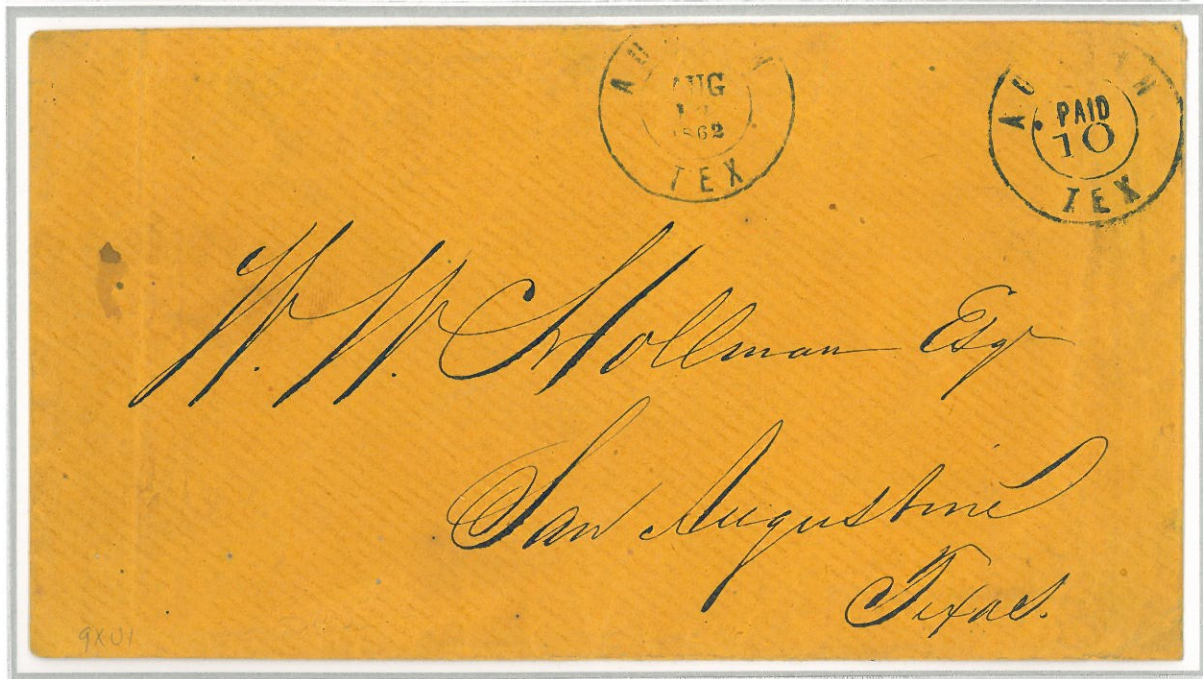 AUSTIN
AUG
1862
TEX
AUSTIN
PAID
10
TEX
W. W. Hollman Esqr
San Augustine
Texas.
9XU1